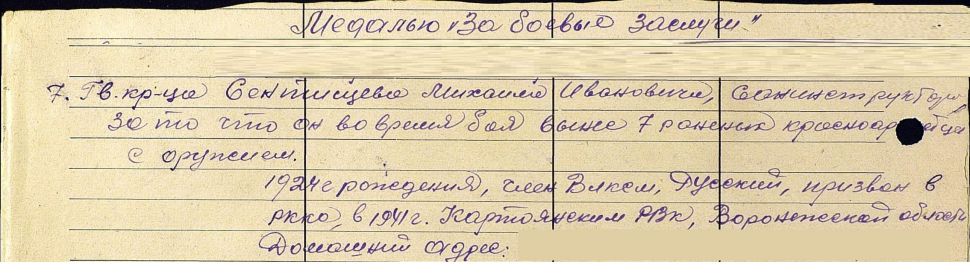 Медалью „За боевые заслуги"
7. Гв. кр-ца Сентищева Михаила Ивановича, санинструктора,
За то что он во время боя вынес 7 раненых красноармейца
с оружием.
1924 г рождения, член Влксм, Русский, призван в
ркка, в 1941 г. Картоянским РВК, Воронежской области
Домашний адрес: